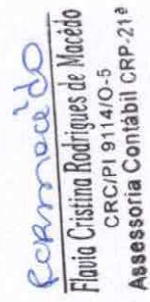 FCRmacêdo
Flavia Cristina Rodrigues de Macêdo
CRC/PI 9114/O-5
Assessoria Contábil CRP-21ª